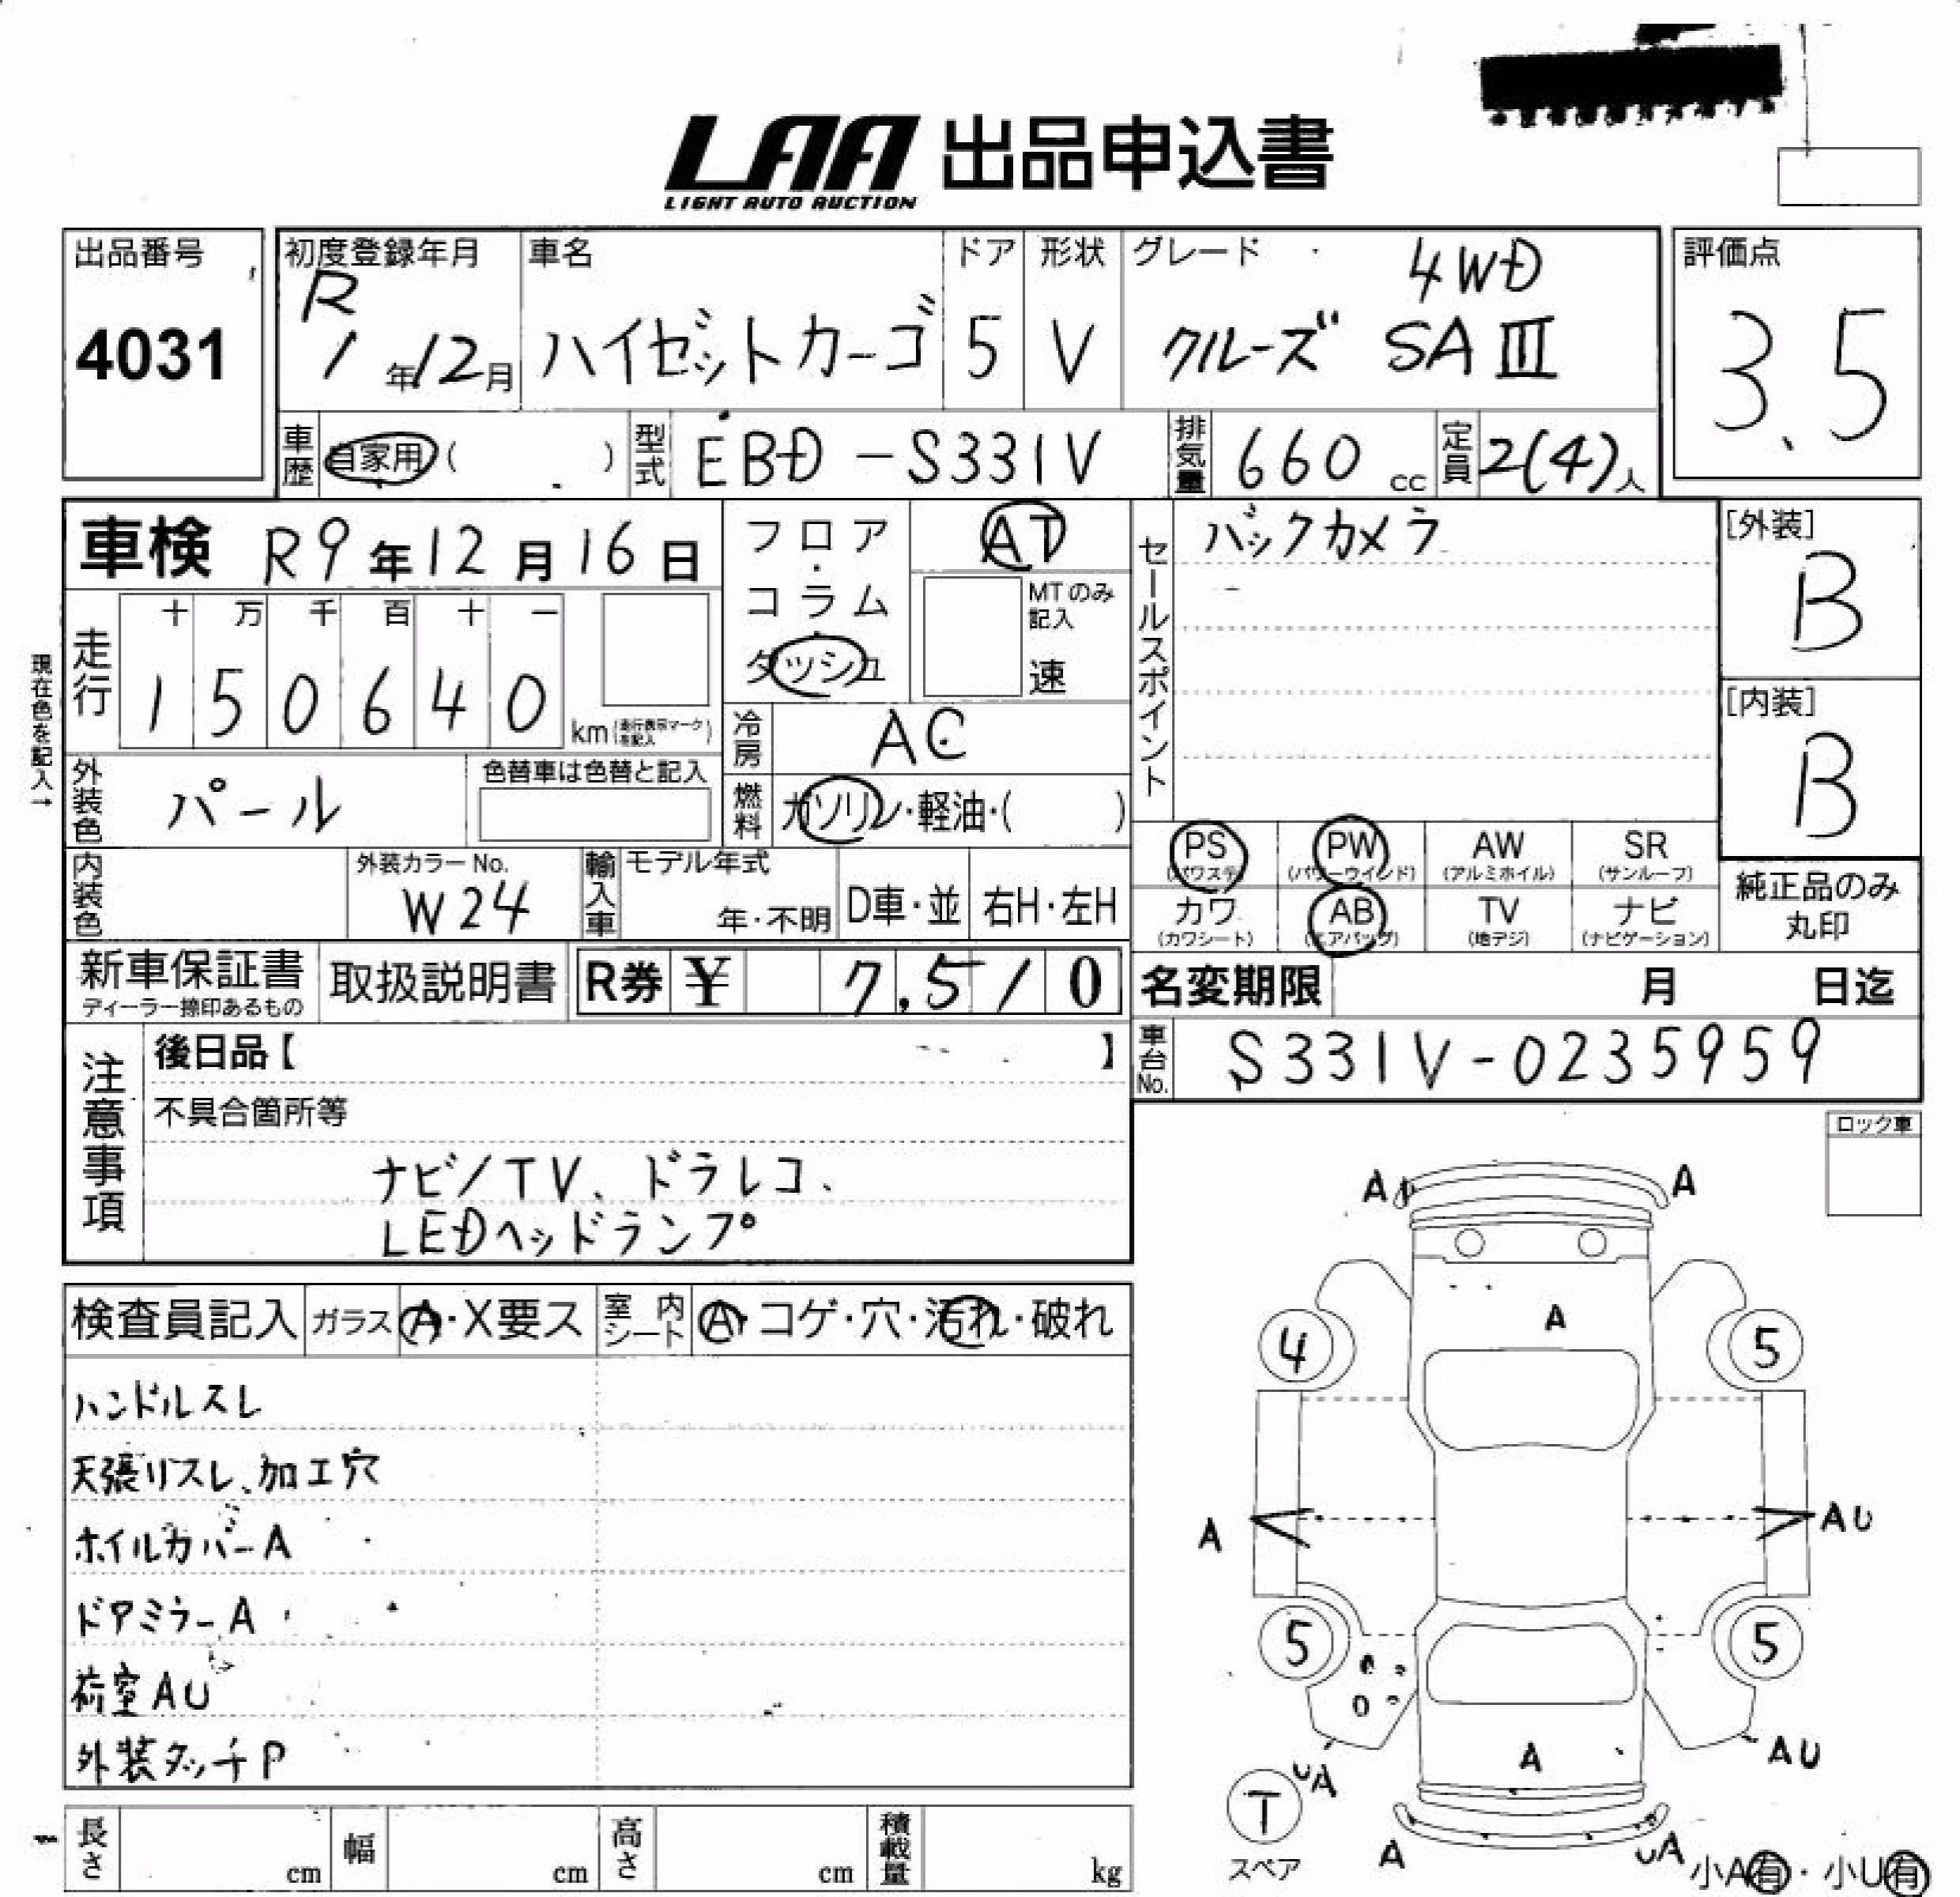 LAA 出品申込書
LIGHT AUTO AUCTION
出品番号
4031
初度登録年月
R
1年12月
車名
ハイゼットカーゴ
ドア
5
形状
V
グレード
4WD
クルーズ SAⅢ
評価点
3.5
車歴 自家用( )
型式 EBD-S331V
排気量 660 cc
定員 2(4)人
車検 R9年12月16日
フロア・コラム・ダッシュ
AT
MTのみ記入
速
セールスポイント
バックカメラ
[外装]
B
[内装]
B
現在色を記入→
走行
十 万 千 百 十 一
1 5 0 6 4 0
km(走行表示マークを記入)
冷房 AC
外装色 パール
色替車は色替と記入
燃料 ガソリン・軽油・( )
PS (パワステ)
PW (パワーウインド)
AW (アルミホイル)
SR (サンルーフ)
カワ (カワシート)
AB (エアバッグ)
TV (地デジ)
ナビ (ナビゲーション)
純正品のみ
丸印
内装色
外装カラーNo.
W24
輸入車
モデル年式
年・不明
D車・並
右H・左H
新車保証書
ディーラー捺印あるもの
取扱説明書
R券 ¥ 7,510
名変期限 月 日迄
車台No. S331V-0235959
注意事項
後日品【 】
不具合箇所等
ナビ/TV、ドラレコ、
LEDヘッドランプ
ロック車
検査員記入
ガラス A・X要ス
室内シート A・コゲ・穴・汚れ・破れ
ハンドルスレ
天張りスレ、加工穴
ホイルカバーA
ドアミラーA
荷室AU
外装タッチP
A A
A
4 5
A AU
5 5
A
UA AU
T
スペア
A UA
小A有・小U有
長さ cm
幅 cm
高さ cm
積載量 kg